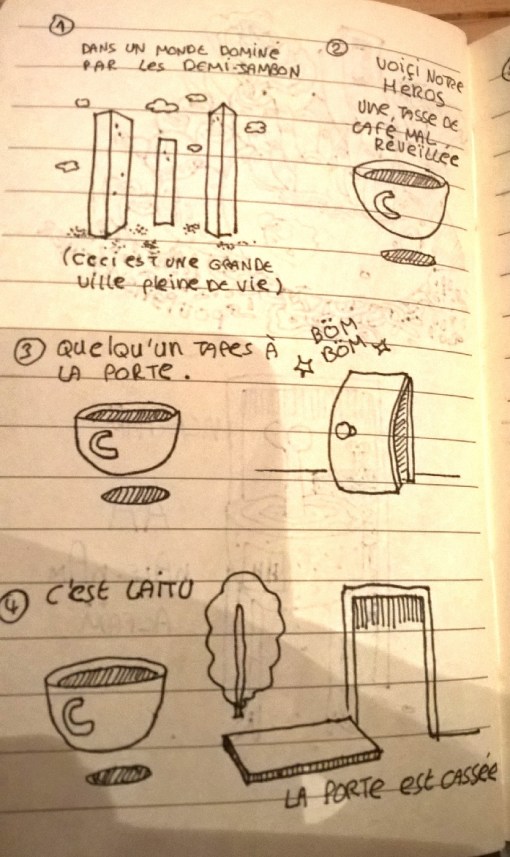 1
DANS UN MONDE DOMINÉ
PAR LES DEMI-JAMBON
(CECI EST UNE GRANDE
VILLE PLEINE DE VIE)
2
VOIÇI NOTRE
HÉROS
UNE TASSE DE
CAFÉ MAL
RÉVEILLÉE
3 QUELQU'UN TAPES À
LA PORTE.
BÖM
BÖM
4 C'EST LAITU
LA PORTE EST CASSÉE